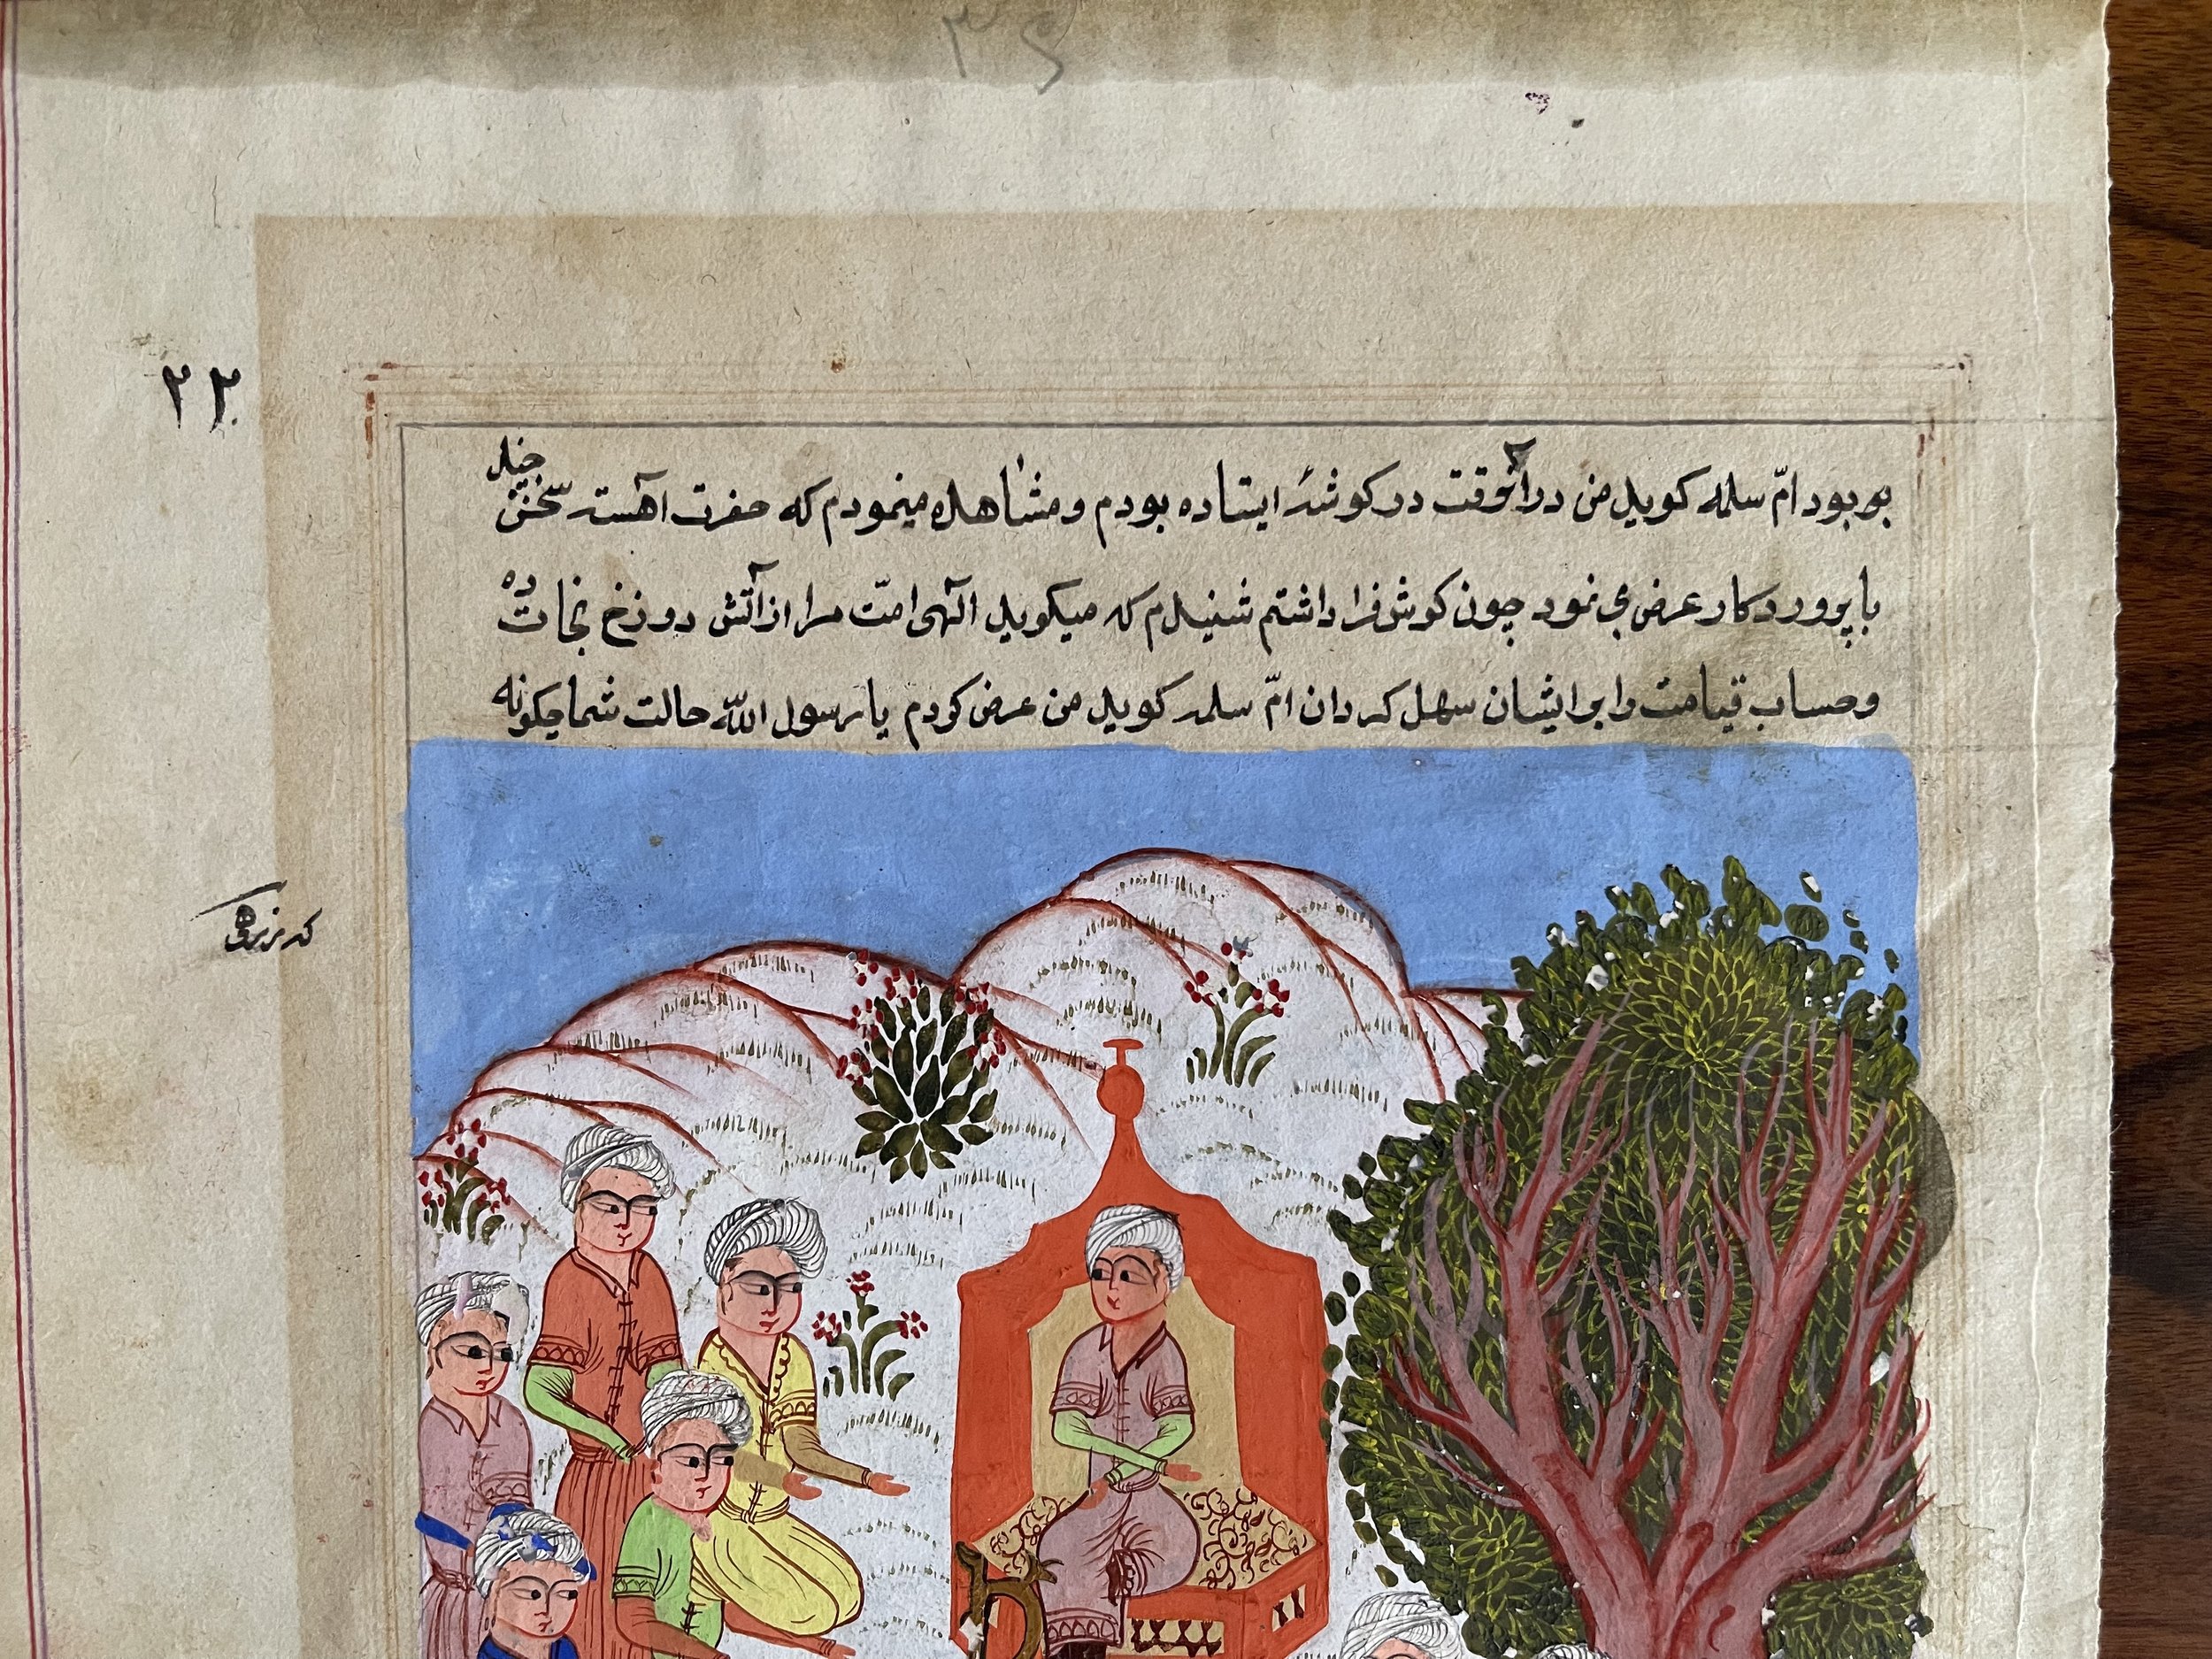 ۳۶
۲۲
بو بود امّ سلمه کوید من در آنوقت در کوشهٔ ایستاده بودم و مشاهده مینمودم که حضرت آهسته سخن چند
با پرورد کار عرض می نمود چون کوش فرا داشتم شنیدم که میکوید الٓهی امّت مرا از آتش دوزخ نجات ده
و حساب قیامت را بر ایشان سهل کردان امّ سلمه کوید من عرض کردم یا رسول اللّه حالت شما چکونه